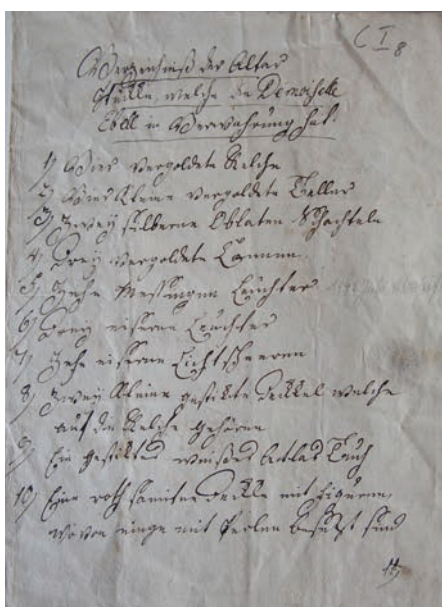 C I 8
Verzeichniß der Altar
Stükke, welche die Demoiselle
Ebell in Verwahrung hat.
1) Vier vergoldete Kelche
2) Vier kleine vergoldete Teller
3) Zwey silberne Oblaten Schachteln
4) Drey vergoldete Kannen.
5) Zehn Messingne Leuchter
6) Drey eiserne Leuchter
7) Zehn eiserne Lichtscheeren
8) Zwey kleine gestikte Dekkel welche
auf die Kelche gehören
9) Ein gestiktes weißes Attlas Tuch
10) Eine roth samtne Dekke mit Figuren,
wovon einge mit Perlen besetzt sind
11)